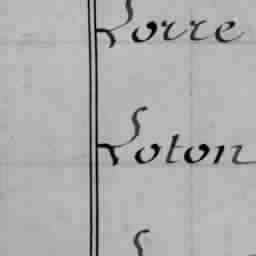 Lorre
Loton